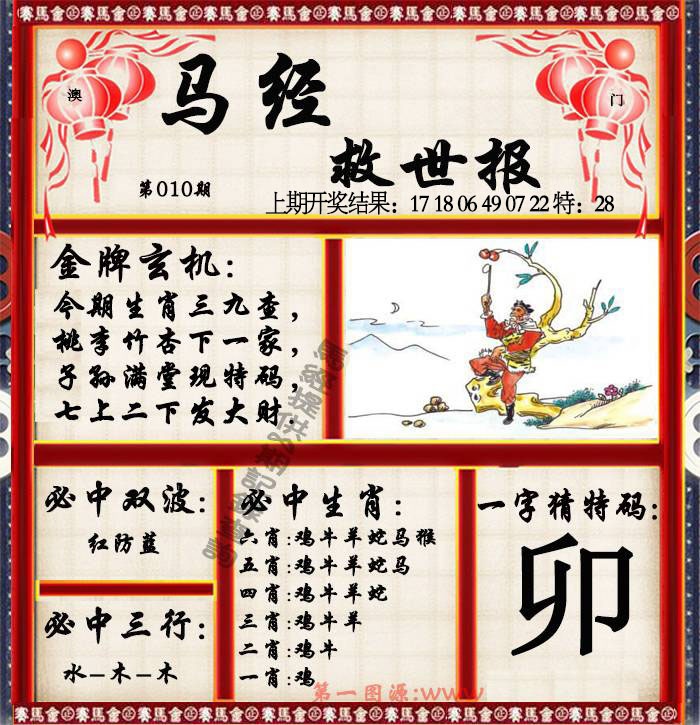 賽馬會正賽馬會正賽馬會正賽馬會正賽馬會正賽馬會正賽馬會
澳
门
马经
救世报
第010期
上期开奖结果：17 18 06 49 07 22 特：28
金牌玄机：
今期生肖三九查，
桃李竹杏下一家，
子孙满堂现特码，
七上二下发大财．
必中双波：
红防蓝
必中三行：
水－木－木
必中生肖：
六肖：鸡牛羊蛇马猴
五肖：鸡牛羊蛇马
四肖：鸡牛羊蛇
三肖：鸡牛羊
二肖：鸡牛
一肖：鸡
一字猜特码：
卯
第一图源:www